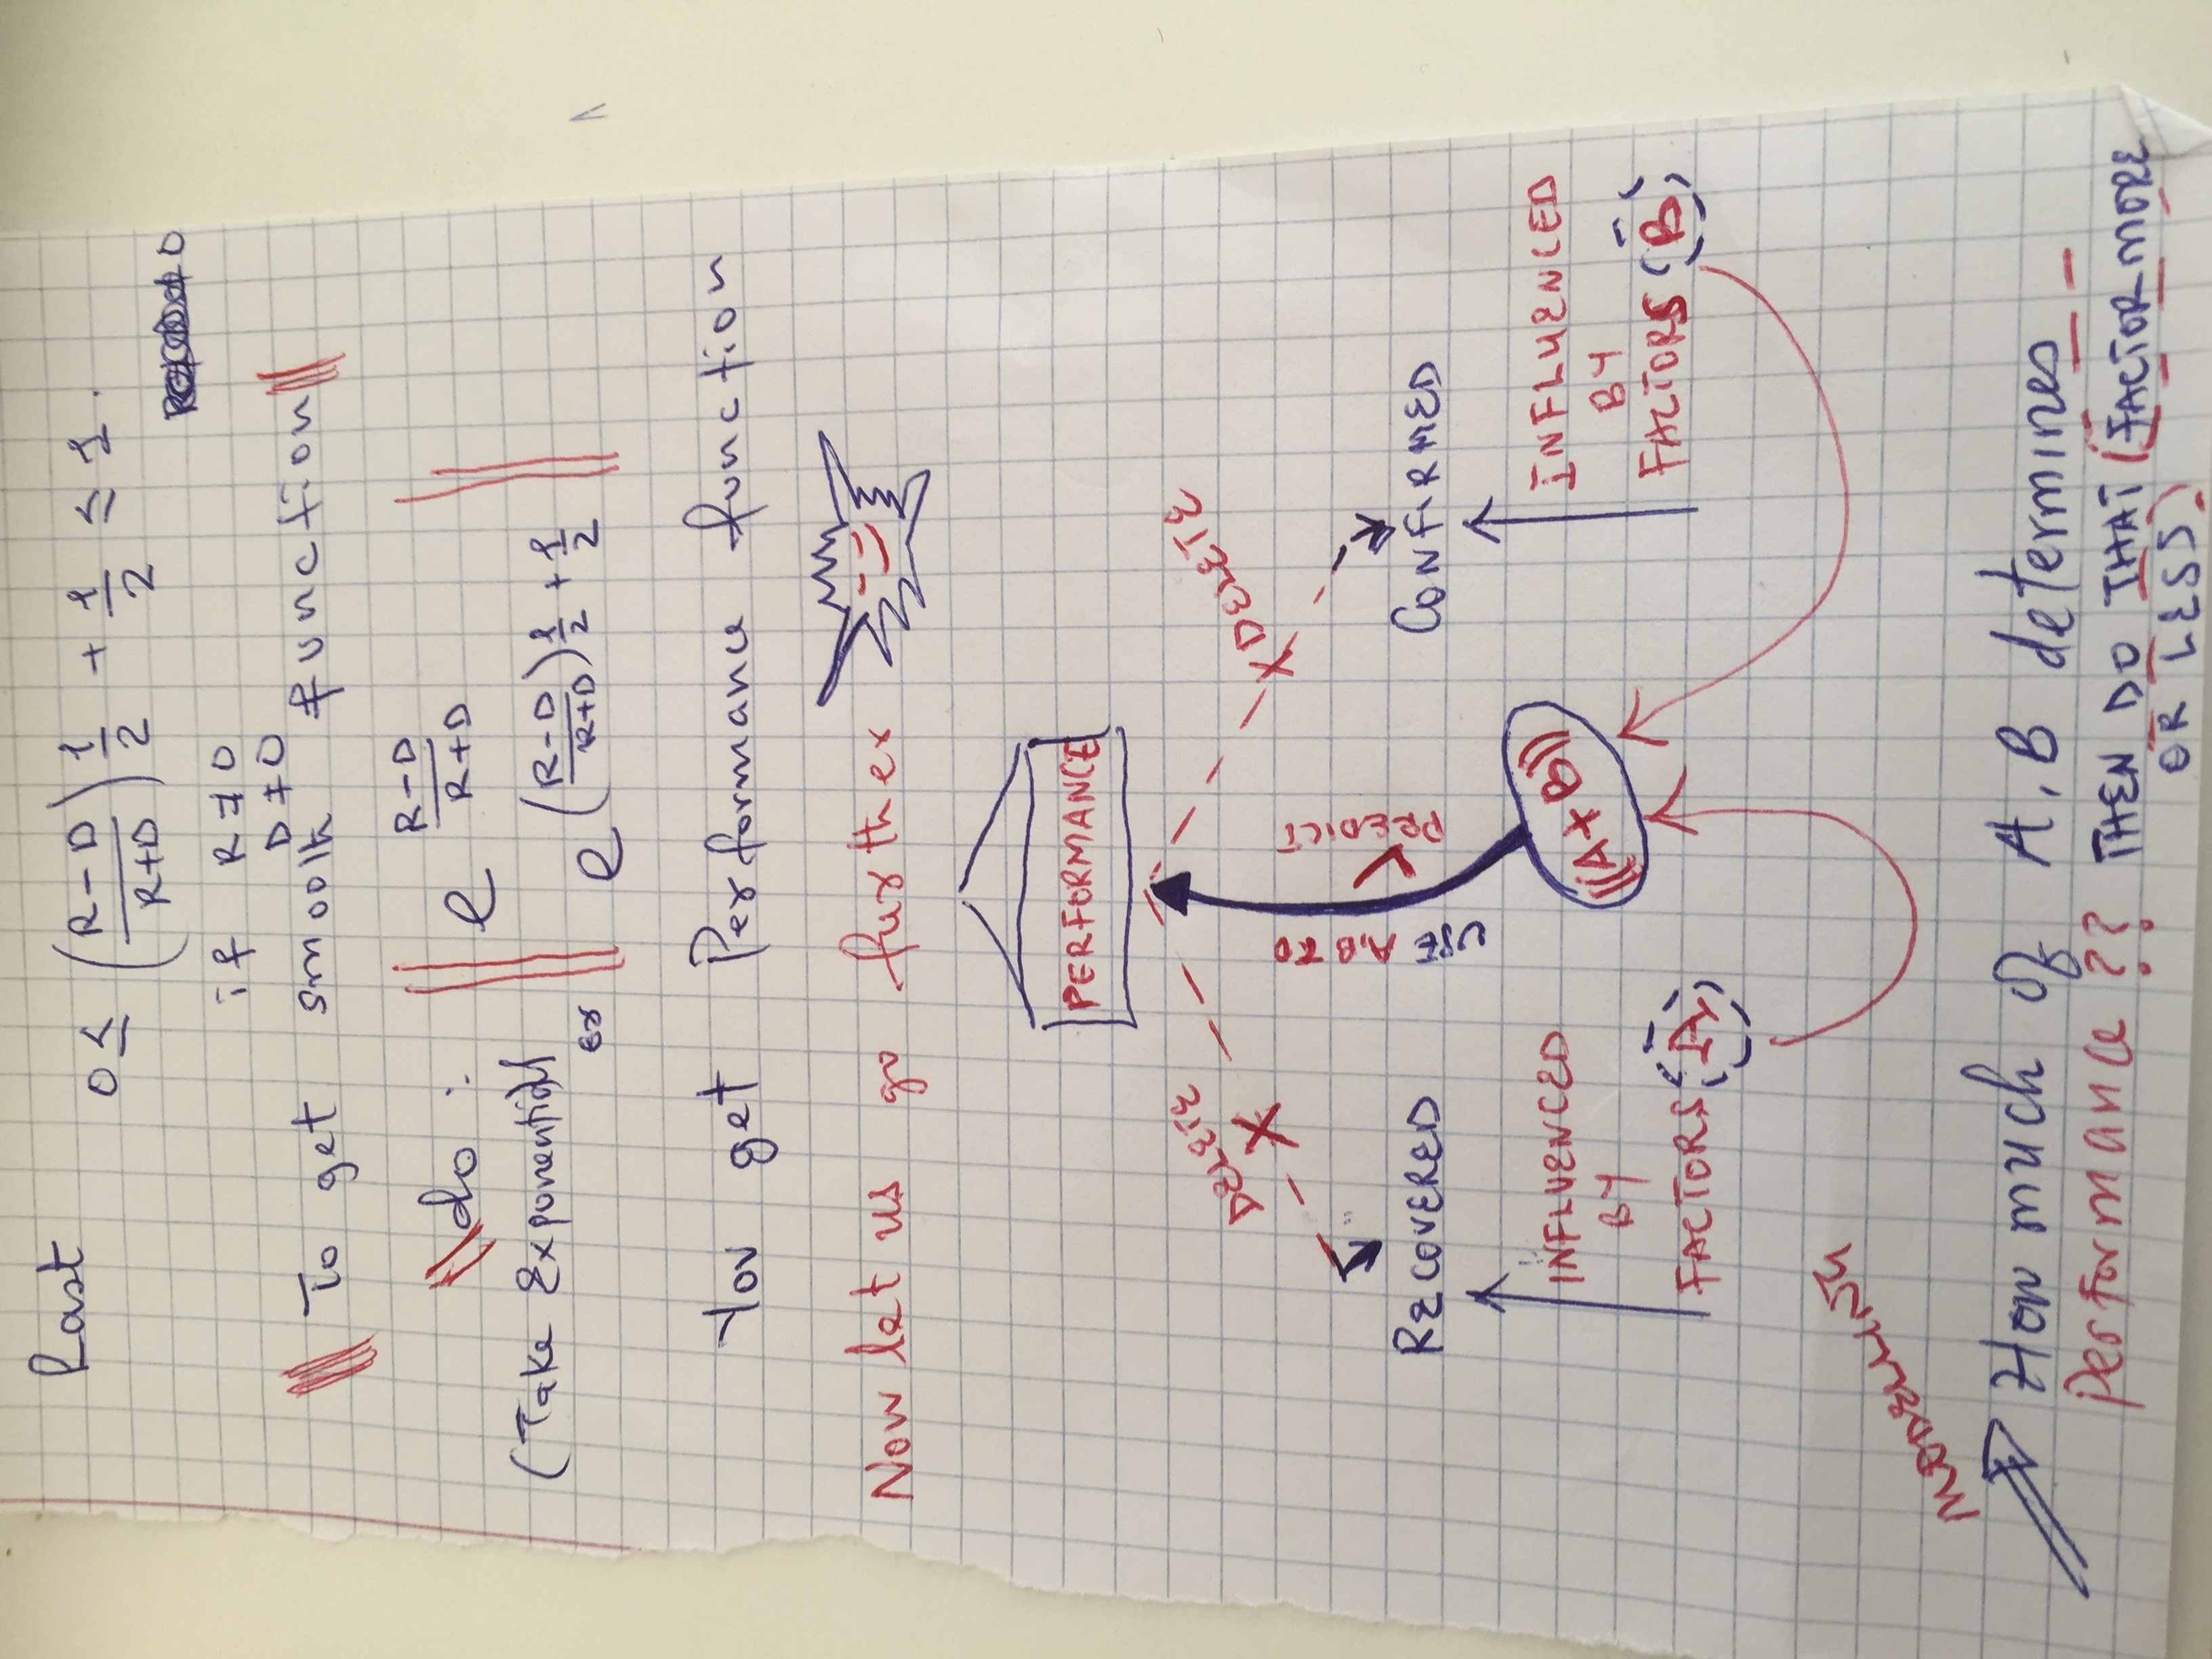 Last
0 ≤ (R-D / R+D) 1/2 + 1/2 ≤ 1.
if R ≠ 0
D ≠ 0
To get smooth function
do : e^(R-D / R+D)
(Take Exponential)
or e^((R-D / R+D) 1/2 + 1/2)
You get Performance function
Now let us go further
PERFORMANCE
DELETE X
X DELETE
USE A,B TO
PREDICT
RECOVERED
CONFIRMED
INFLUENCED
BY
FACTORS A
((A+B))
INFLUENCED
BY
FACTORS B
MODELLING
How much of A, B determines
Performance ?? THEN DO THAT (FACTOR MORE
OR LESS)